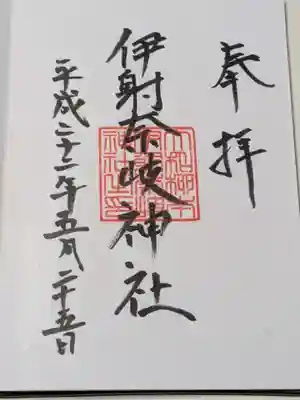 奉拝
伊射奈岐神社
平成二十二年五月二十五日